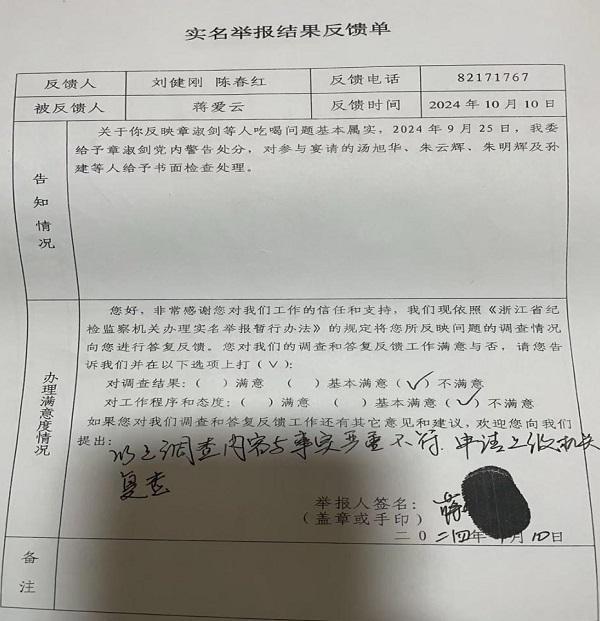 实名举报结果反馈单
反馈人 刘健刚 陈春红 反馈电话 82171767
被反馈人 蒋爱云 反馈时间 2024 年 10 月 10 日
告知情况
关于你反映章淑剑等人吃喝问题基本属实，2024 年 9 月 25 日，我委
给予章淑剑党内警告处分，对参与宴请的汤旭华、朱云辉、朱明辉及孙
建等人给予书面检查处理。
办理满意度情况
您好，非常感谢您对我们工作的信任和支持，我们现依照《浙江省纪
检监察机关办理实名举报暂行办法》的规定将您所反映问题的调查情况
向您进行答复反馈。您对我们的调查和答复反馈工作满意与否，请您告
诉我们并在以下选项上打（√）：
对调查结果：（ ）满意 （ ）基本满意（√）不满意
对工作程序和态度：（ ）满意 （ ）基本满意（√）不满意
如果您对我们调查和答复反馈工作还有其它意见和建议，欢迎您向我们
提出：以上调查内容与事实严重不符. 申请上级机关
复查
举报人签名：蒋
（盖章或手印）
二〇二四年 月 日
备注